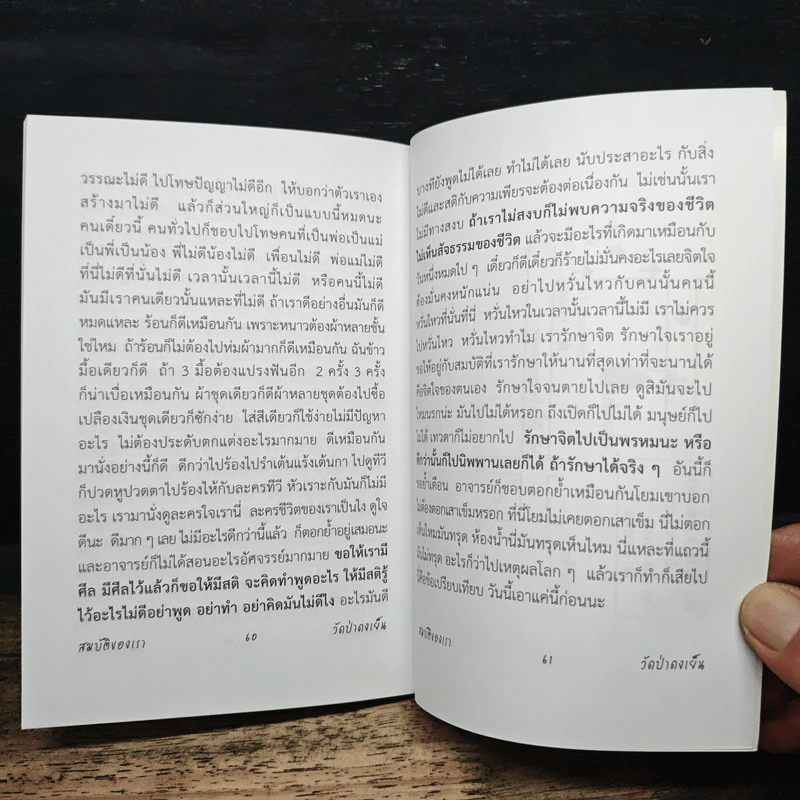 วรรณะไม่ดี ไปโทษปัญญาไม่ดีอีก ให้บอกว่าตัวเราเอง
สร้างมาไม่ดี แล้วก็ส่วนใหญ่ก็เป็นแบบนี้หมดนะ
คนเดี๋ยวนี้ คนทั่วไปก็ชอบไปโทษคนที่เป็นพ่อเป็นแม่
เป็นพี่เป็นน้อง พี่ไม่ดีน้องไม่ดี เพื่อนไม่ดี พ่อแม่ไม่ดี
ที่นี่ไม่ดีที่นั่นไม่ดี เวลานั้นเวลานี้ไม่ดี หรือคนนี้ไม่ดี
มันมีเราคนเดียวนั้นแหละที่ไม่ดี ถ้าเราดีอย่างอื่นมันก็ดี
หมดแหละ ร้อนก็ดีเหมือนกัน เพราะหนาวต้องผ้าหลายชั้น
ใช่ไหม ถ้าร้อนก็ไม่ต้องไปห่มผ้ามากก็ดีเหมือนกัน ฉันข้าว
มื้อเดียวก็ดี ถ้า 3 มื้อต้องแปรงฟันอีก 2 ครั้ง 3 ครั้ง
ก็น่าเบื่อเหมือนกัน ผ้าชุดเดียวก็ดีผ้าหลายชุดต้องไปซื้อ
เปลืองเงินชุดเดียวก็ซักง่าย ใส่สีเดียวก็ใช้ง่ายไม่มีปัญหา
อะไร ไม่ต้องประดับตกแต่งอะไรมากมาย ดีเหมือนกัน
มานั่งอย่างนี้ก็ดี ดีกว่าไปร้องไปรำเต้นแร้งเต้นกา ไปดูทีวี
ก็ปวดหูปวดตาไปร้องไห้กับละครทีวี หัวเราะกับมันก็ไม่มี
อะไร เรามานั่งดูละครใจเรานี่ ละครชีวิตของเราเป็นไง ดูใจ
ดีนะ ดีมาก ๆ เลย ไม่มีอะไรดีกว่านี้แล้ว ก็ตอกย้ำอยู่เสมอนะ
และอาจารย์ก็ไม่ได้สอนอะไรอัศจรรย์มากมาย ขอให้เรามี
ศีล มีศีลไว้แล้วก็ขอให้มีสติ จะคิดทำพูดอะไร ให้มีสติรู้
ไว้อะไรไม่ดีอย่าพูด อย่าทำ อย่าคิดมันไม่ดีไง อะไรมันดี
สมบัติของเรา 60 วัดป่าดงเย็น
บางทียังพูดไม่ได้เลย ทำไม่ได้เลย นับประสาอะไร กับสิ่ง
ไม่ดีและสติกับความเพียรจะต้องต่อเนื่องกัน ไม่เช่นนั้นเรา
ไม่มีทางสงบ ถ้าเราไม่สงบก็ไม่พบความจริงของชีวิต
ไม่เห็นสัจธรรมของชีวิต แล้วจะมีอะไรที่เกิดมาเหมือนกับ
วันหนึ่งหมดไป ๆ เดี๋ยวก็ดีเดี๋ยวก็ร้ายไม่มั่นคงอะไรเลยจิตใจ
ต้องมั่นคงหนักแน่น อย่าไปหวั่นไหวกับคนนั้นคนนี้
หวั่นไหวที่นั่นที่นี่ หวั่นไหวในเวลานั้นเวลานี้ไม่มี เราไม่ควร
ไปหวั่นไหว หวั่นไหวทำไม เรารักษาจิต รักษาใจเราอยู่
ขอให้อยู่กับสมบัติที่เรารักษาให้นานที่สุดเท่าที่จะนานได้
คือจิตใจของตนเอง รักษาใจจนตายไปเลย ดูสิมันจะไป
ไหนนรกน่ะ มันไปไม่ได้หรอก ถึงเปิดก็ไปไม่ได้ มนุษย์ก็ไป
ไม่ได้ เทวดาก็ไม่อยากไป รักษาจิตไปเป็นพรหมนะ หรือ
ดีกว่านั้นก็ไปนิพพานเลยก็ได้ ถ้ารักษาได้จริง ๆ อันนี้ก็
ขอย้ำเตือน อาจารย์ก็ชอบตอกย้ำเหมือนกันโยมเขาบอก
ไม่ต้องตอกเสาเข็มหรอก ที่นี่โยมไม่เคยตอกเสาเข็ม นี่ไม่ตอก
เห็นไหมมันทรุด ห้องน้ำนี่มันทรุดเห็นไหม นี่แหละที่แถวนี้
มันไม่ทรุด อะไรก็ว่าไปเหตุผลโลก ๆ แล้วเราก็ทำก็เสียไป
นี่คือข้อเปรียบเทียบ วันนี้เอาแค่นี้ก่อนนะ
สมบัติของเรา 61 วัดป่าดงเย็น